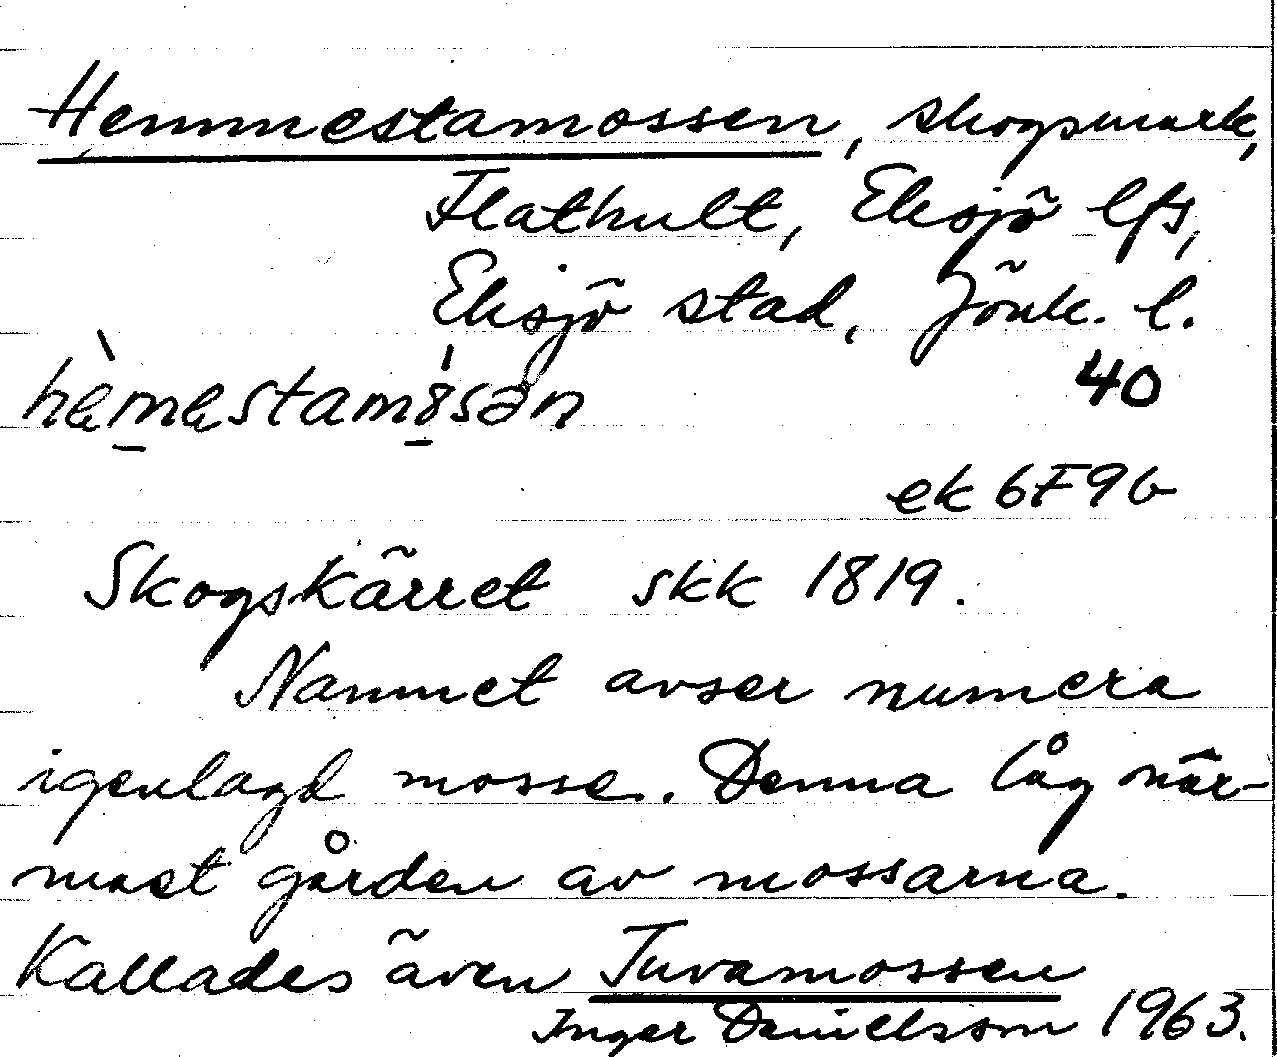 Hemmestamossen, skogsmark,
Flathult, Eksjö lfs,
Eksjö stad, Jönk. l.
hèmestamósən
40
ek 6F9b
Skogskärret skk 1819.
Namnet avser numera
igenlagd mosse. Denna låg när-
mast gården av mossarna.
Kallades även Tuvamossen
Inger Danielsson 1963.